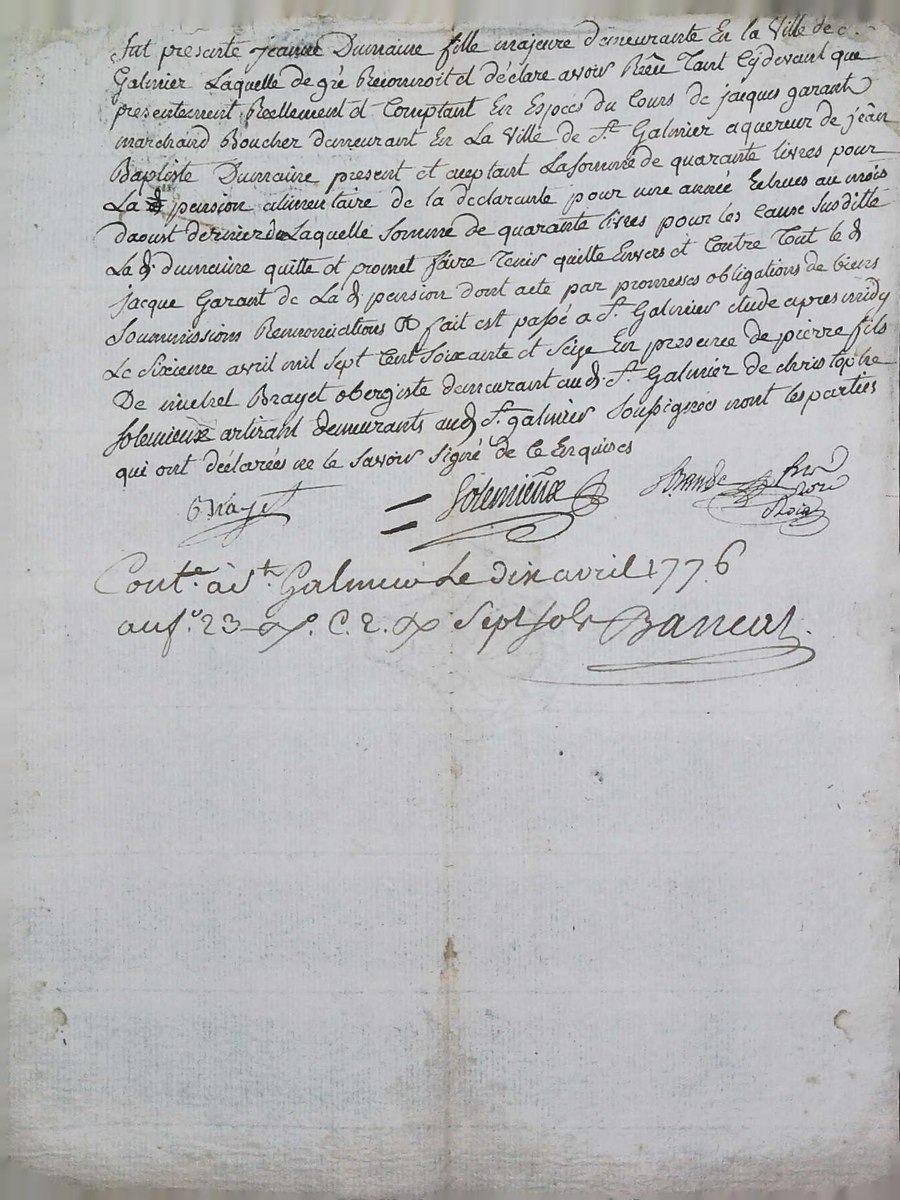 fut presente jeanne Dumaine fille majeure demeurante En la Ville de
Galmier Laquelle de gré Reconnoit et déclare avoir Rêcu Tant Cydevant que
presentement Réellement et Comptant En Espéces du Cours de jacques garant
marchand Boucher demeurant En La Ville de St Galmier aquereur de jêan
Baptiste Dumaine present et aceptant La somme de quarante livres pour
La pension alimentaire de la déclarante pour une année Echues au mois
daoust dernier de Laquelle somme de quarante livres pour les cause susditte
La d dumaine quitte et promet faire Tenir quitte Envers et Contre Tout le d
jacque Garant de La d pension dont acte par promesses obligations de biens
Soummissions Rennonciations & fait est passé a St Galmier etude apres midy
Le Sixieme avril mil Sept Cent Soixante et Seize En presence de pierre fils
De michel Brayet obergiste demeurant aud St Galmier de christophe
Solemieux artisant demeurants aud St galmier Soussignés nont les parties
qui ont déclarées ne le Savoir Signé de Ce Enquises
Brayet = Solemieux
Conte à St Galmier Le dix avril 1776
au fo 23 Ro C. 2. Sept Sols Bancat